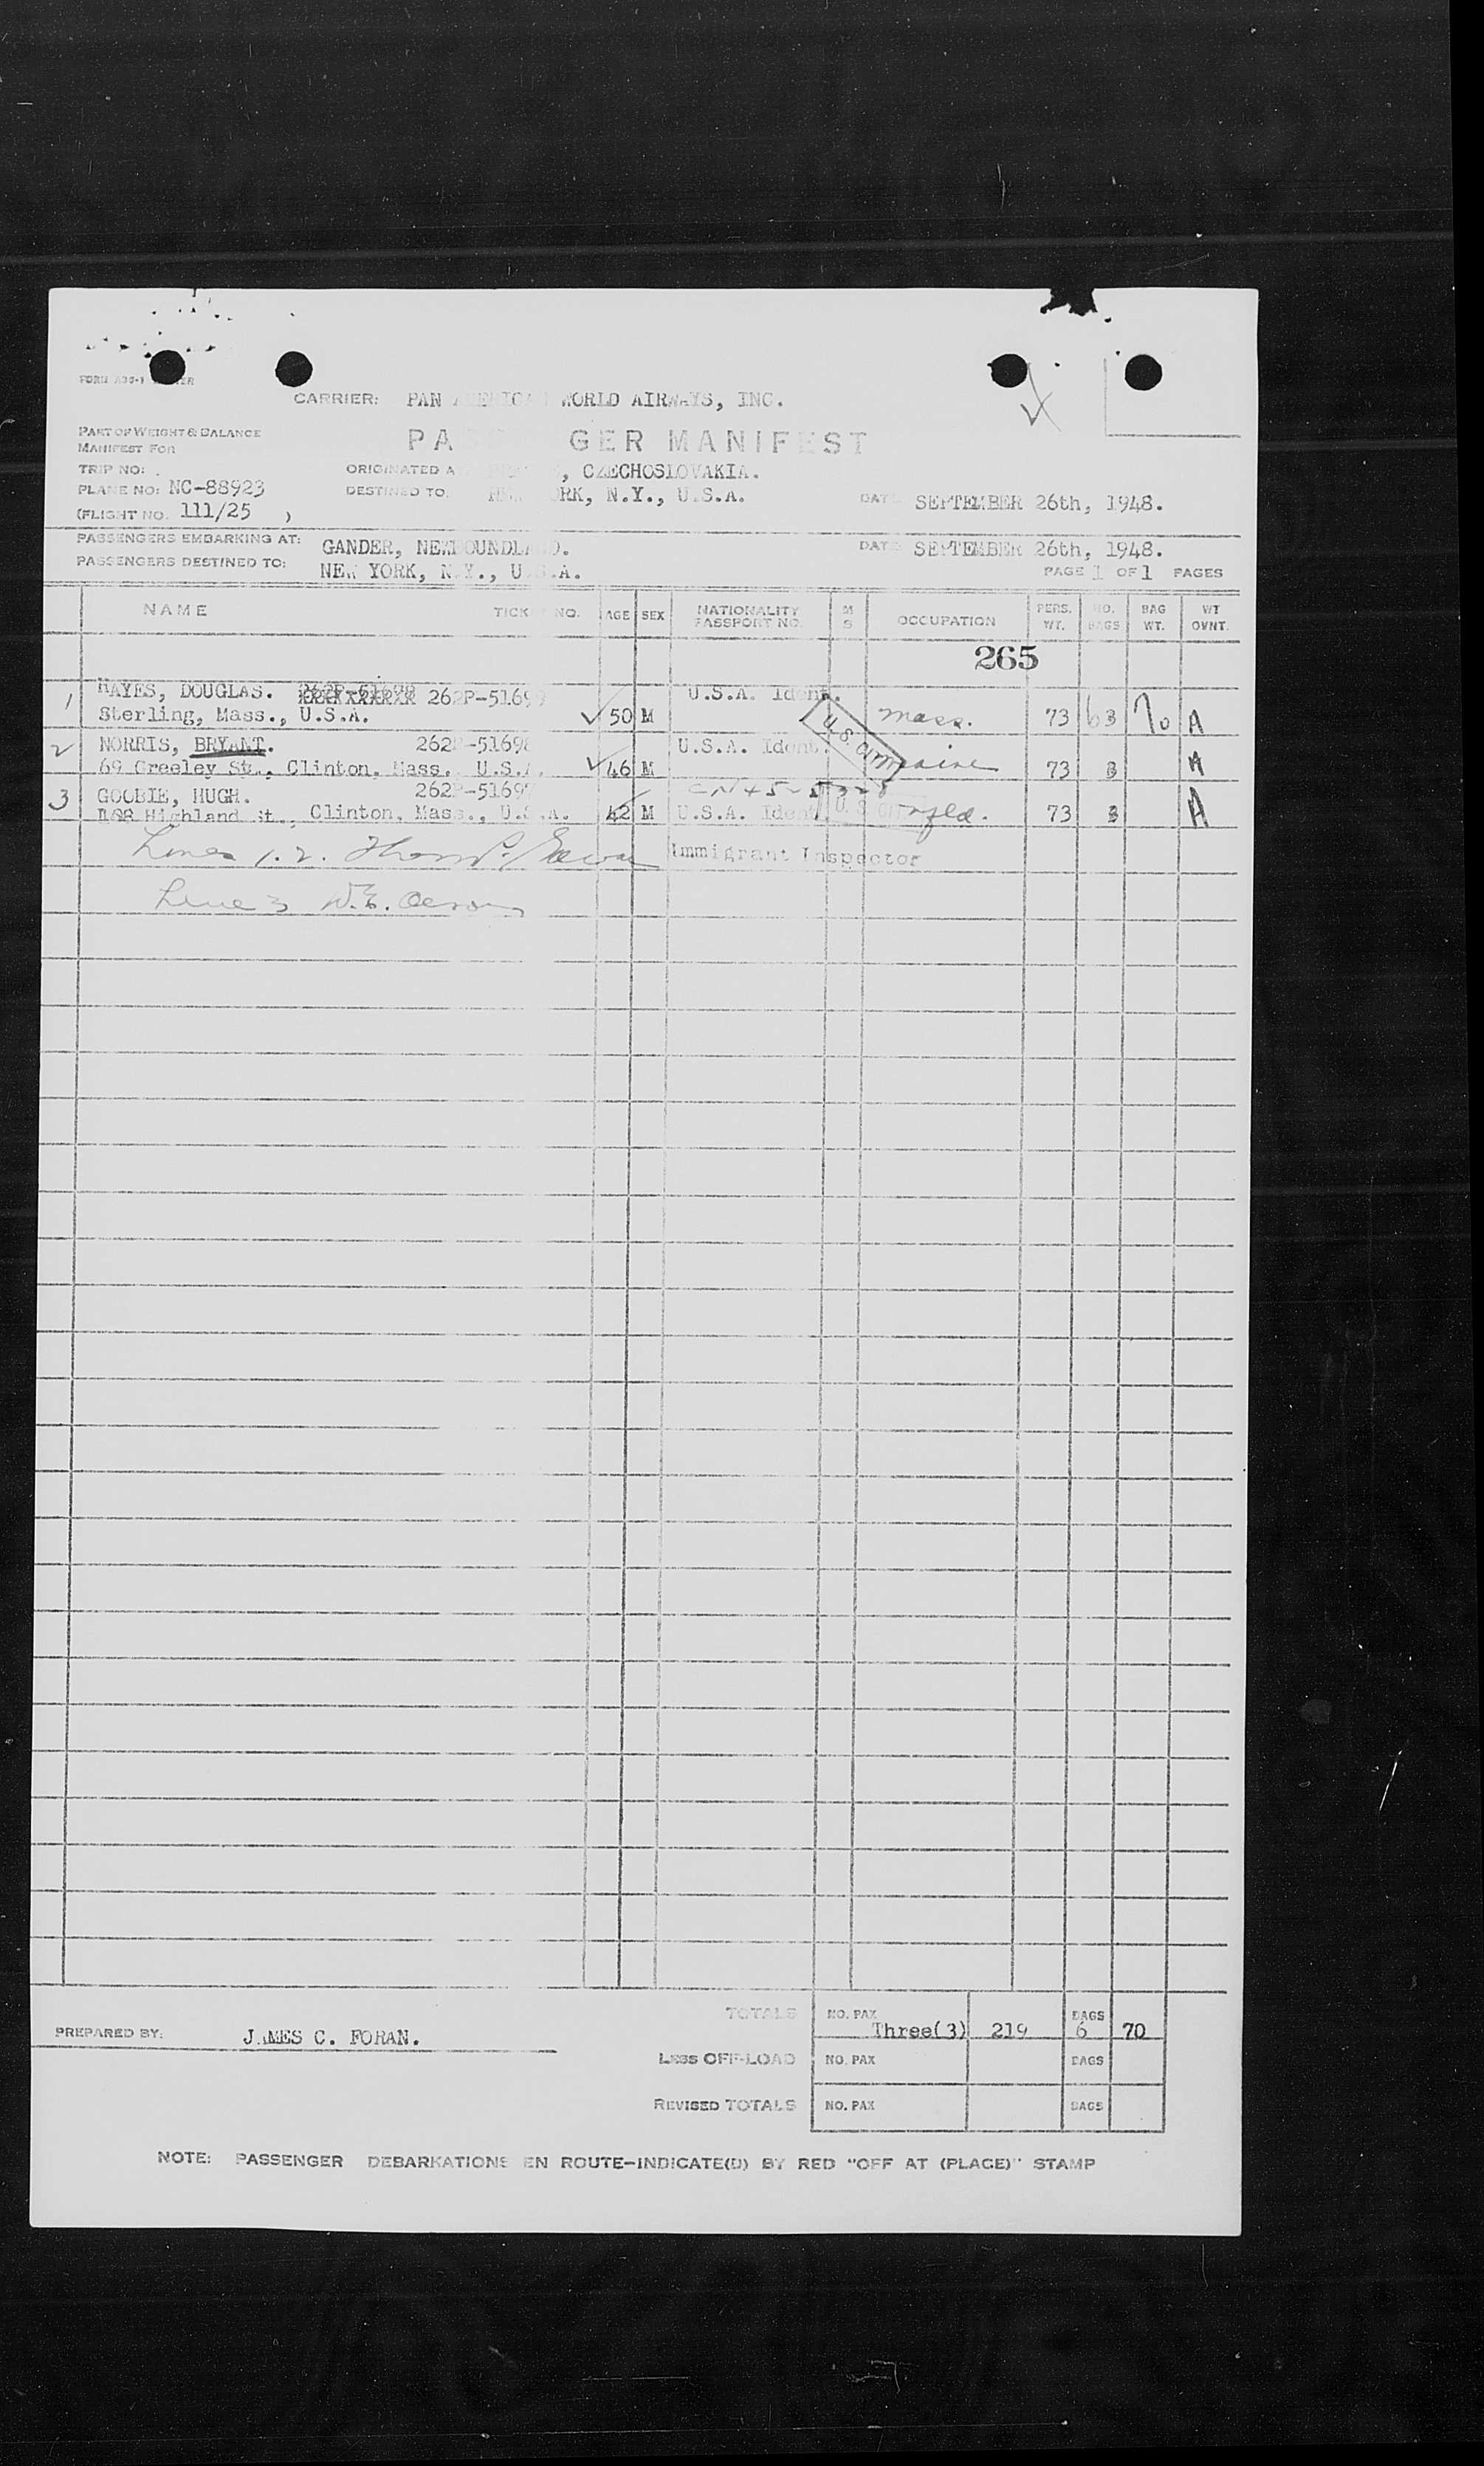 CARRIER: PAN AMERICAN WORLD AIRWAYS, INC.
PART OF WEIGHT & BALANCE
MANIFEST FOR
PA GER MANIFEST
TRIP NO: .
ORIGINATED A , CZECHOSLOVAKIA.
PLANE NO: NC-88923
DESTINED TO. NEW YORK, N.Y., U.S.A.
DATE SEPTEMBER 26th, 1948.
(FLIGHT NO. 111/25 )
PASSENGERS EMBARKING AT: GANDER, NEWFOUNDLAND.
DATE SEPTEMBER 26th, 1948.
PASSENGERS DESTINED TO: NEW YORK, N.Y., U.S.A.
PAGE 1 OF 1 PAGES
NAME TICK NO. AGE SEX NATIONALITY PASSPORT NO. M S OCCUPATION PERS. WT. NO. BAGS BAG WT. WT OVNT.
265
1 HAYES, DOUGLAS. 262P-51699 U.S.A. Ident.
Sterling, Mass., U.S.A. 50 M Mass. 73 6 70 A
2 NORRIS, BRYANT. 262P-51698 U.S.A. Ident.
69 Greeley St., Clinton, Mass. U.S.A. 46 M Maine 73 A
3 GOOBIE, HUGH. 262P-51697
Highland St., Clinton, Mass., U.S.A. 42 M U.S.A. Ident. Nfld. 73 A
Lines 1. 2. Immigrant Inspector
Line 3 W.E.
TOTALS NO. PAX Three(3) 219 BAGS 6 70
PREPARED BY: JAMES C. FORAN.
LESS OFF-LOAD NO. PAX BAGS
REVISED TOTALS NO. PAX BAGS
NOTE: PASSENGER DEBARKATIONS EN ROUTE-INDICATE(D) BY RED "OFF AT (PLACE)" STAMP